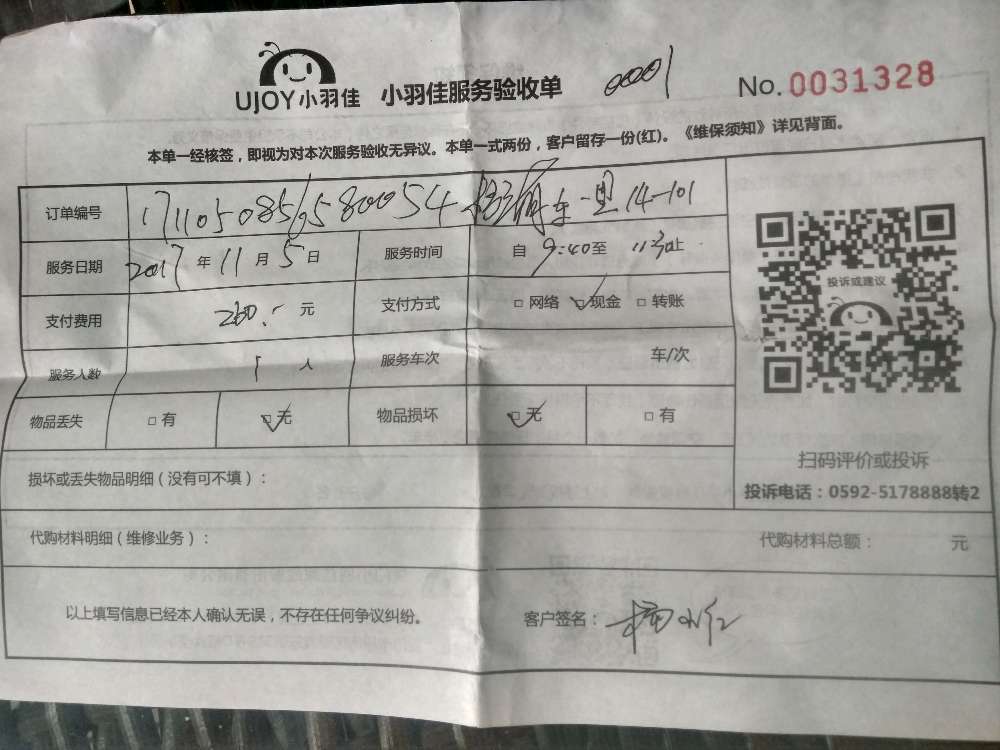 UJOY小羽佳 小羽佳服务验收单 00001 No.0031328
本单一经核签，即视为对本次服务验收无异议。本单一式两份，客户留存一份(红)。《维保须知》详见背面。
订单编号 17110508565800054 东一里14-101
服务日期 2017年11月5日 服务时间 自9:40至11:30止
支付费用 260.- 元 支付方式 □网络 ☑现金 □转账
服务人数 1 人 服务车次 车/次
物品丢失 □有 ☑无 物品损坏 ☑无 □有
投诉或建议
扫码评价或投诉
投诉电话：0592-5178888转2
损坏或丢失物品明细（没有可不填）：
代购材料明细（维修业务）： 代购材料总额： 元
以上填写信息已经本人确认无误，不存在任何争议纠纷。 客户签名：